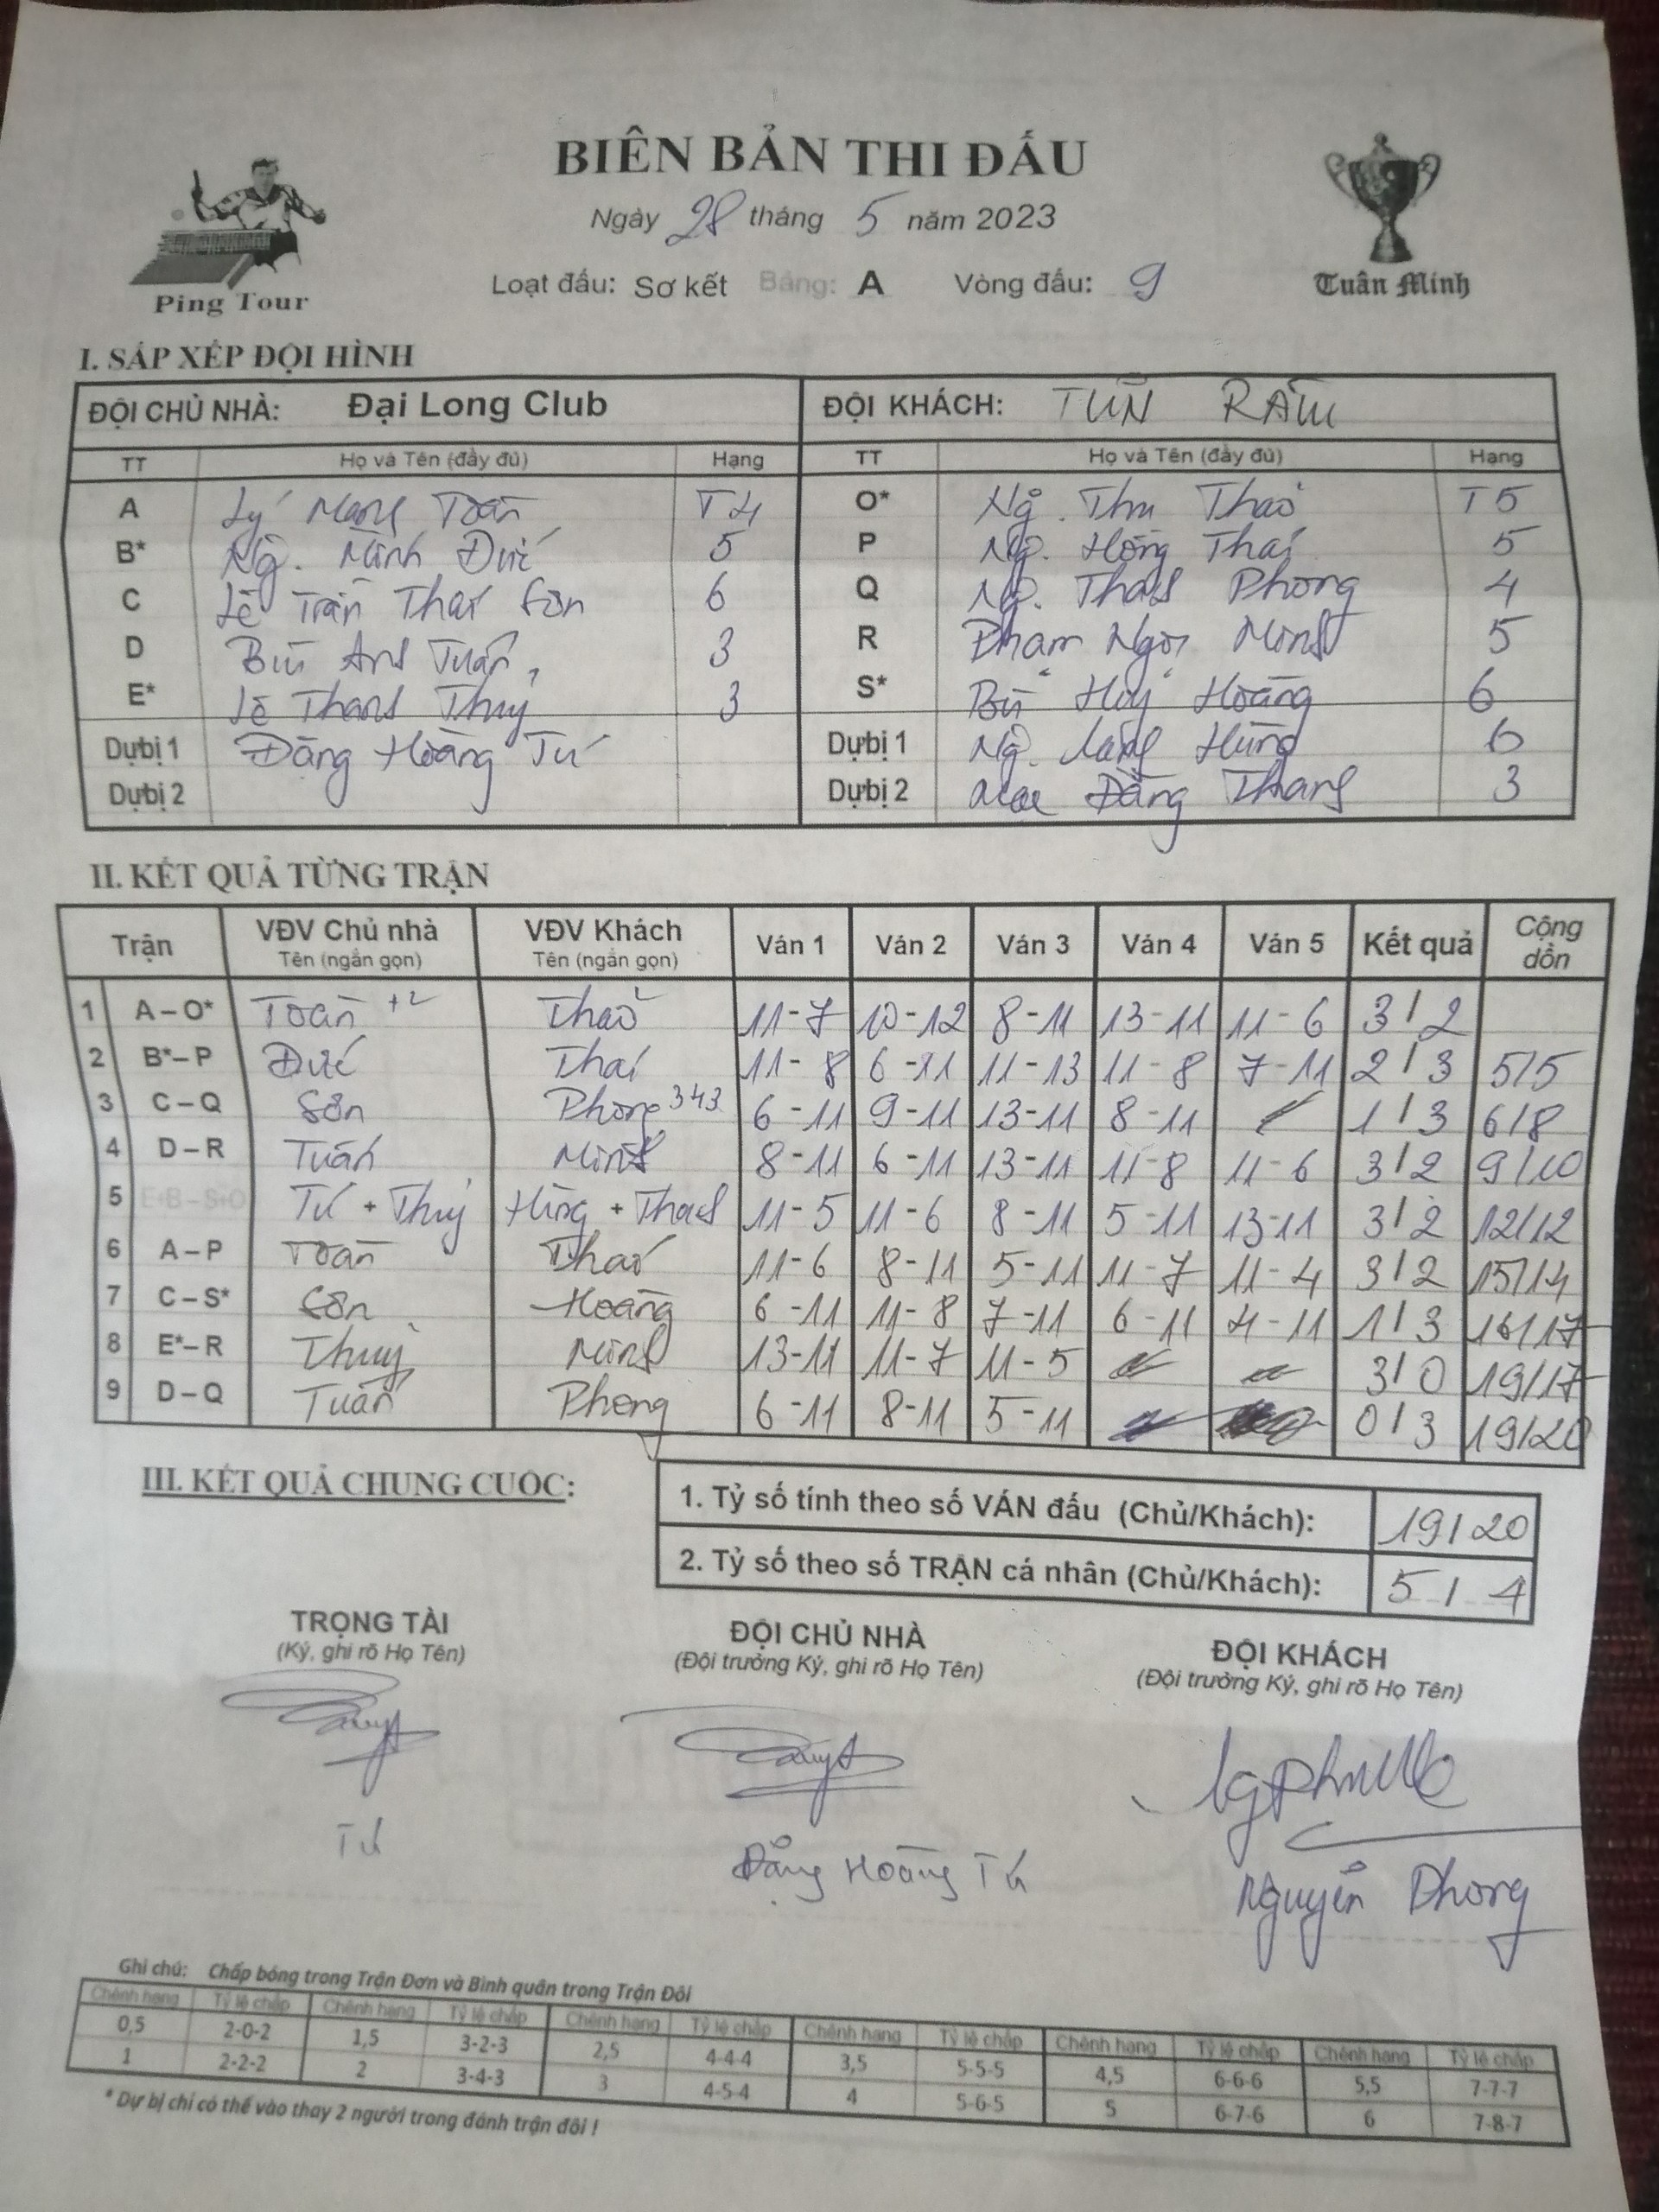 BIÊN BẢN THI ĐẤU
Ngày 28 tháng 5 năm 2023
Ping Tour
Loạt đấu: Sơ kết Bảng: A Vòng đấu: 9
Tuân Minh
I. SẮP XẾP ĐỘI HÌNH
ĐỘI CHỦ NHÀ: Đại Long Club ĐỘI KHÁCH: TUN
TT Họ và Tên (đầy đủ) Hạng TT Họ và Tên (đầy đủ) Hạng
A Lý Mạnh Toàn T4 O* Ng. Thu Thảo T5
B* Ng. Minh Đức 5 P Ng. Hồng Thái 5
C Lê Trần Thái Sơn 6 Q Ng. Thanh Phong 4
D Bùi Anh Tuấn 3 R Phạm Ngọc Minh 5
E* Lê Thanh Thuỷ 3 S* Bùi Huy Hoàng 6
Dự bị 1 Đặng Hoàng Tú Dự bị 1 Ng. Hùng 6
Dự bị 2 Dự bị 2 Đăng Thanh 3
II. KẾT QUẢ TỪNG TRẬN
Trận VĐV Chủ nhà VĐV Khách Ván 1 Ván 2 Ván 3 Ván 4 Ván 5 Kết quả Cộng dồn
Tên (ngắn gọn) Tên (ngắn gọn)
1 A – O* Toàn +2 Thảo 11-7 10-12 8-11 13-11 11-6 3/2
2 B*– P Đức Thái 11-8 6-11 11-13 11-8 7-11 2/3 5/5
3 C – Q Sơn Phong 343 6-11 9-11 13-11 8-11 1/3 6/8
4 D – R Tuấn Minh 8-11 6-11 13-11 11-8 11-6 3/2 9/10
5 E+B – S+O Tú + Thuỷ Hùng + Thanh 11-5 11-6 8-11 5-11 13-11 3/2 12/12
6 A – P Toàn Thái 11-6 8-11 5-11 11-7 11-4 3/2 15/14
7 C – S* Sơn Hoàng 6-11 11-8 7-11 6-11 4-11 1/3 16/17
8 E*– R Thuỷ Minh 13-11 11-7 11-5 3/0 19/17
9 D – Q Tuấn Phong 6-11 8-11 5-11 0/3 19/20
III. KẾT QUẢ CHUNG CUỘC:
1. Tỷ số tính theo số VÁN đấu (Chủ/Khách): 19/20
2. Tỷ số theo số TRẬN cá nhân (Chủ/Khách): 5/4
TRỌNG TÀI ĐỘI CHỦ NHÀ ĐỘI KHÁCH
(Ký, ghi rõ Họ Tên) (Đội trưởng Ký, ghi rõ Họ Tên) (Đội trưởng Ký, ghi rõ Họ Tên)
Tú Đặng Hoàng Tú Nguyễn Phong
Ghi chú: Chấp bóng trong Trận Đơn và Bình quân trong Trận Đôi
Chênh hạng Tỷ lệ chấp Chênh hạng Tỷ lệ chấp Chênh hạng Tỷ lệ chấp Chênh hạng Tỷ lệ chấp Chênh hạng Tỷ lệ chấp Chênh hạng Tỷ lệ chấp
0,5 2-0-2 1,5 3-2-3 2,5 4-4-4 3,5 5-5-5 4,5 6-6-6 5,5 7-7-7
1 2-2-2 2 3-4-3 3 4-5-4 4 5-6-5 5 6-7-6 6 7-8-7
* Dự bị chỉ có thể vào thay 2 người trong đánh trận đôi !